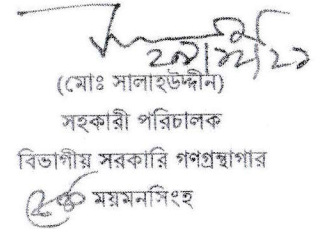 ২৯/১২/২১
(মোঃ সালাহউদ্দীন)
সহকারী পরিচালক
বিভাগীয় সরকারি গণগ্রন্থাগার
ময়মনসিংহ